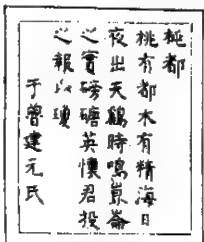 桃都
桃有都木有精海日
夜出天鶴時鳴崑崙
之實磅磄英懷君投
之報以瓊
于曾建元氏